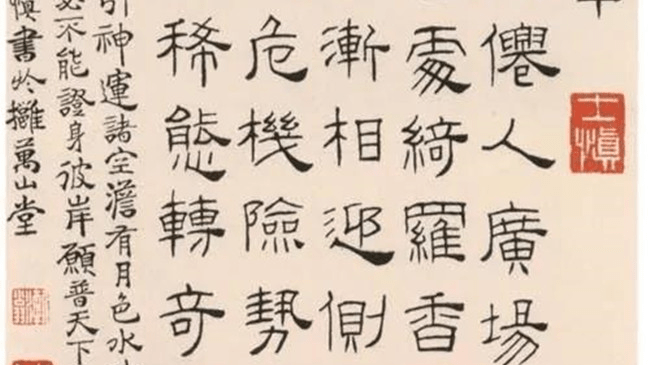 士慎
僊人廣場
處綺羅香
漸相迎側
危機險勢
稀態轉奇
引神運諸空澹有月色水
不能證身彼岸願普天下
慎書於萬山堂